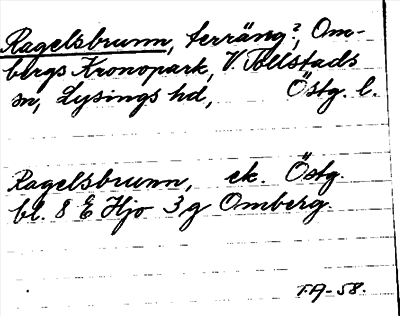 Ragelsbrunn, terräng?, Om-
bergs Kronopark, V. Tollstads
sn, Lysings hd, Östg. l.
Ragelsbrunn, ek. Östg.
bl. 8 E Hjo 3g Omberg.
T.A-58.